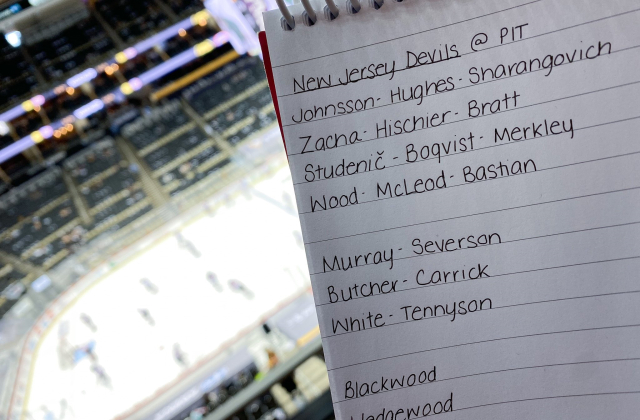 New Jersey Devils @ PIT
Johnsson - Hughes - Sharangovich
Zacha - Hischier - Bratt
Studenič - Boqvist - Merkley
Wood - McLeod - Bastian
Murray - Severson
Butcher - Carrick
White - Tennyson
Blackwood
Wedgewood